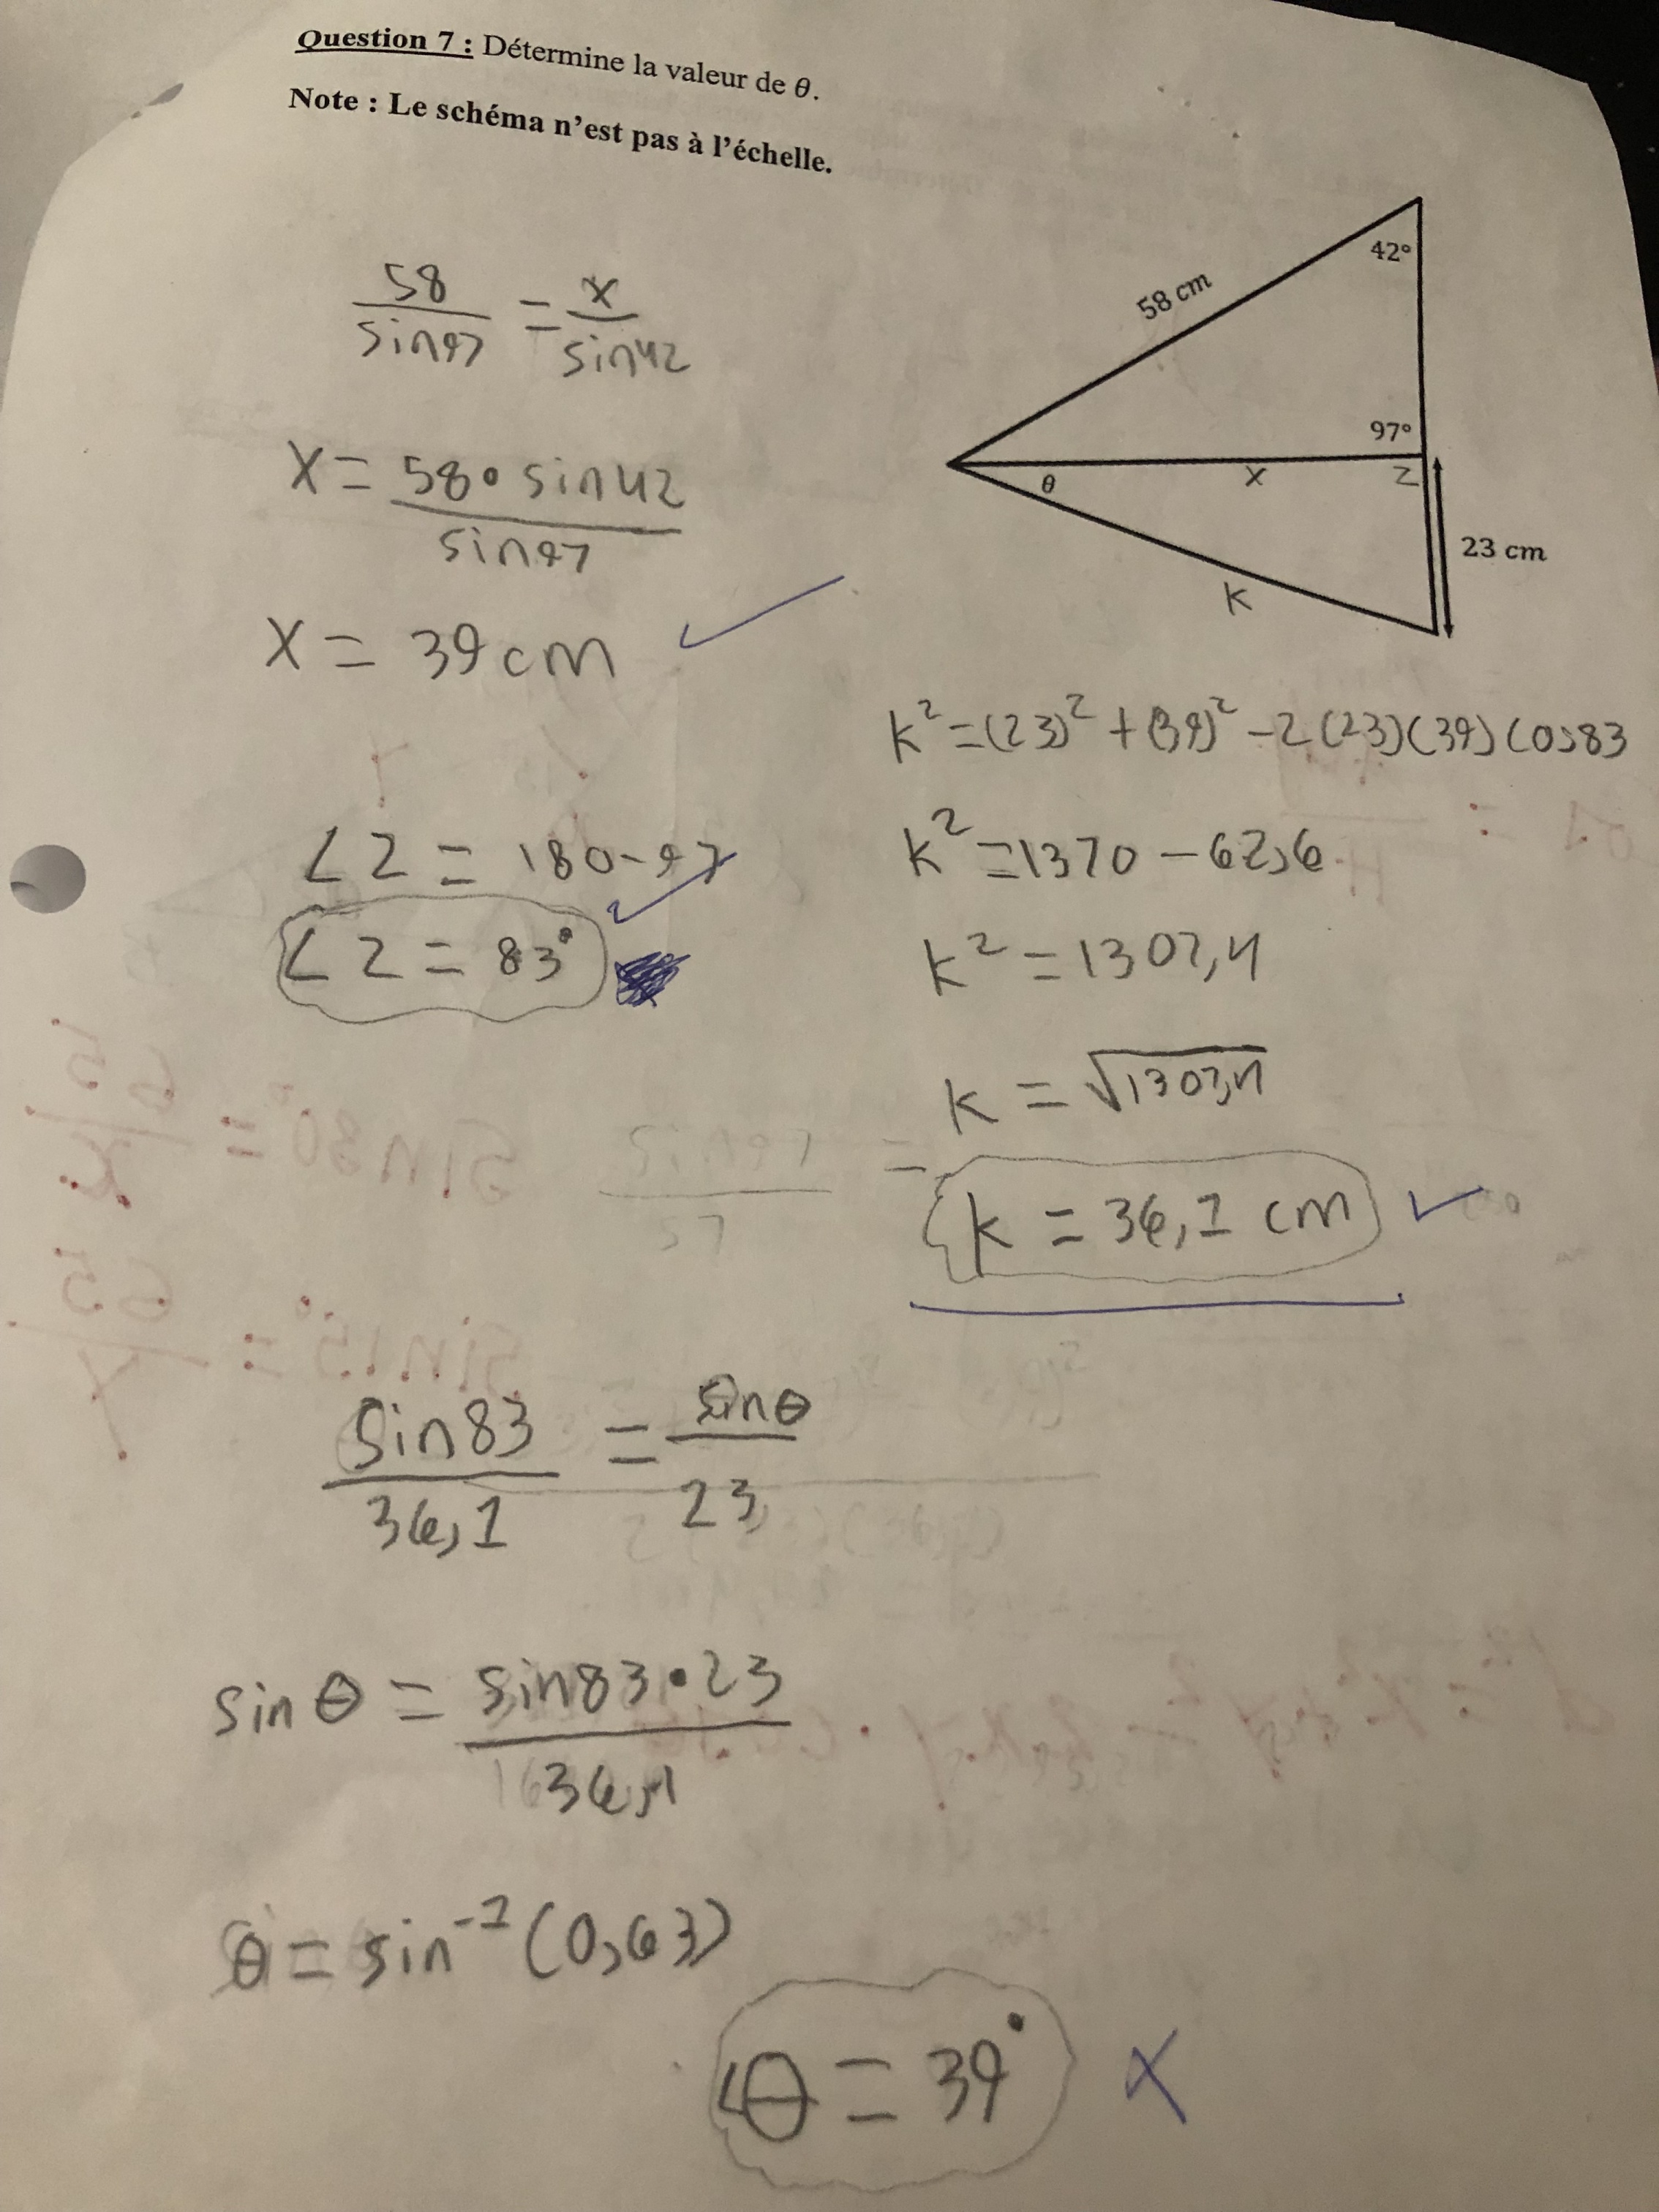 Question 7 : Détermine la valeur de θ.
Note : Le schéma n'est pas à l'échelle.
42°
58 cm
97°
θ
x
Z
23 cm
K
58/sin97 = x/sin42
X = 58 • sin42/sin97
X = 39 cm
∠Z = 180-97
∠Z = 83°
K² = (23)² + (39)² - 2(23)(39) cos83
K² = 1370 - 62,6
K² = 1307,4
K = √1307,4
K = 36,1 cm
sin83/36,1 = sinθ/23
sin θ = sin83 • 23/36,1
θ = sin⁻¹(0,63)
∠θ = 39°